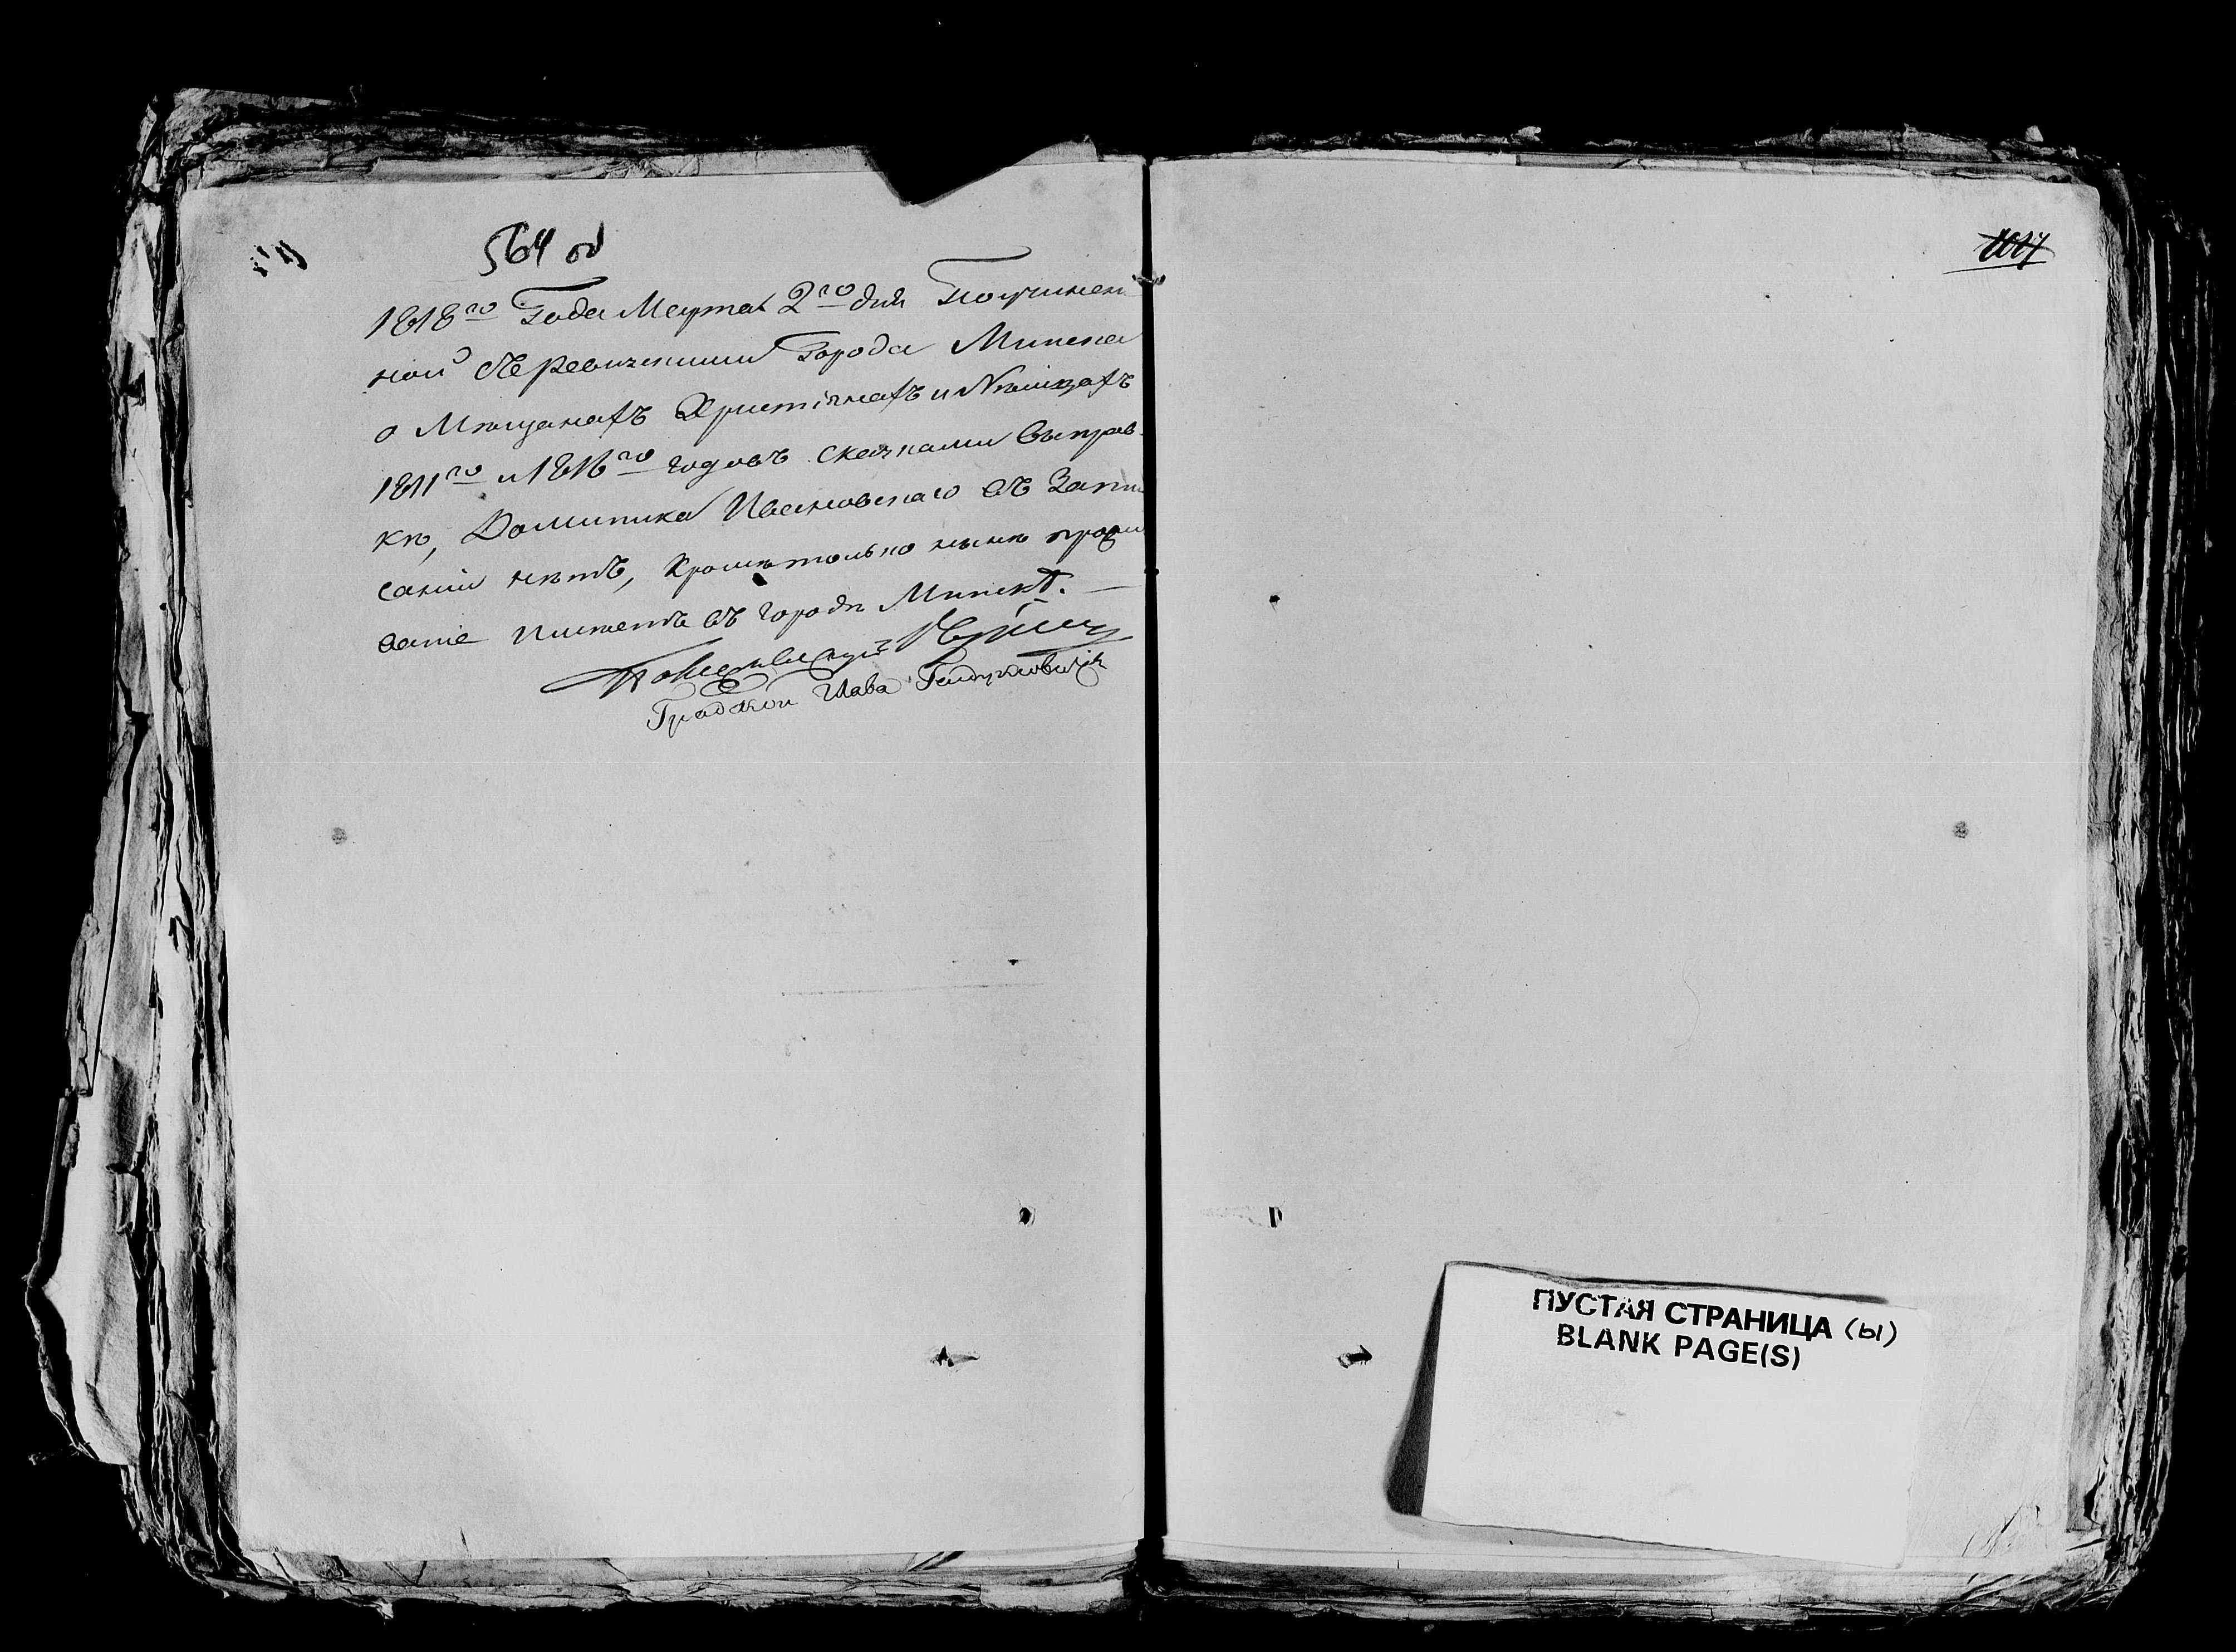 564 об
1818го Года Марта 2го дня По учинен
ной съ Ревизскими Города Минска
о Мѣщанахъ Христіянахъ и
1811го и 1816го годовъ сказками выправ
кѣ, Доминика Ивановскаго въ Запи
саніи нѣтъ, Кромѣ только нынѣ
въ городѣ Минскѣ. —
Градской Глава
1017
ПУСТАЯ СТРАНИЦА (Ы)
BLANK PAGE(S)